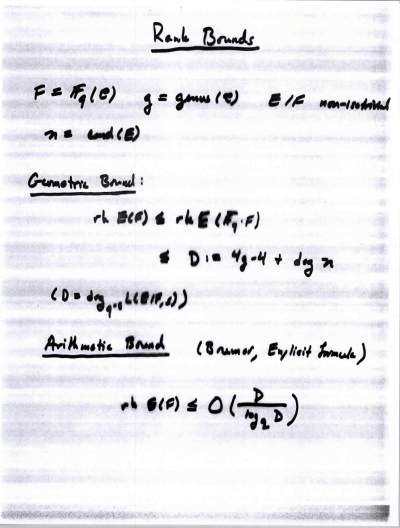 Rank Bounds
F = 𝔽_q(C)   g = genus(C)   E/F non-isotrivial
n = cond(E)
Geometric Bound:
rk E(F) ≤ rk E(F̄_q·F)
≤ D := 4g-4 + deg n
(D = deg_{q^{-s}} L(E/F, s))
Arithmetic Bound (Brumer, Explicit formula)
rk E(F) ≤ O(D / log_q D)